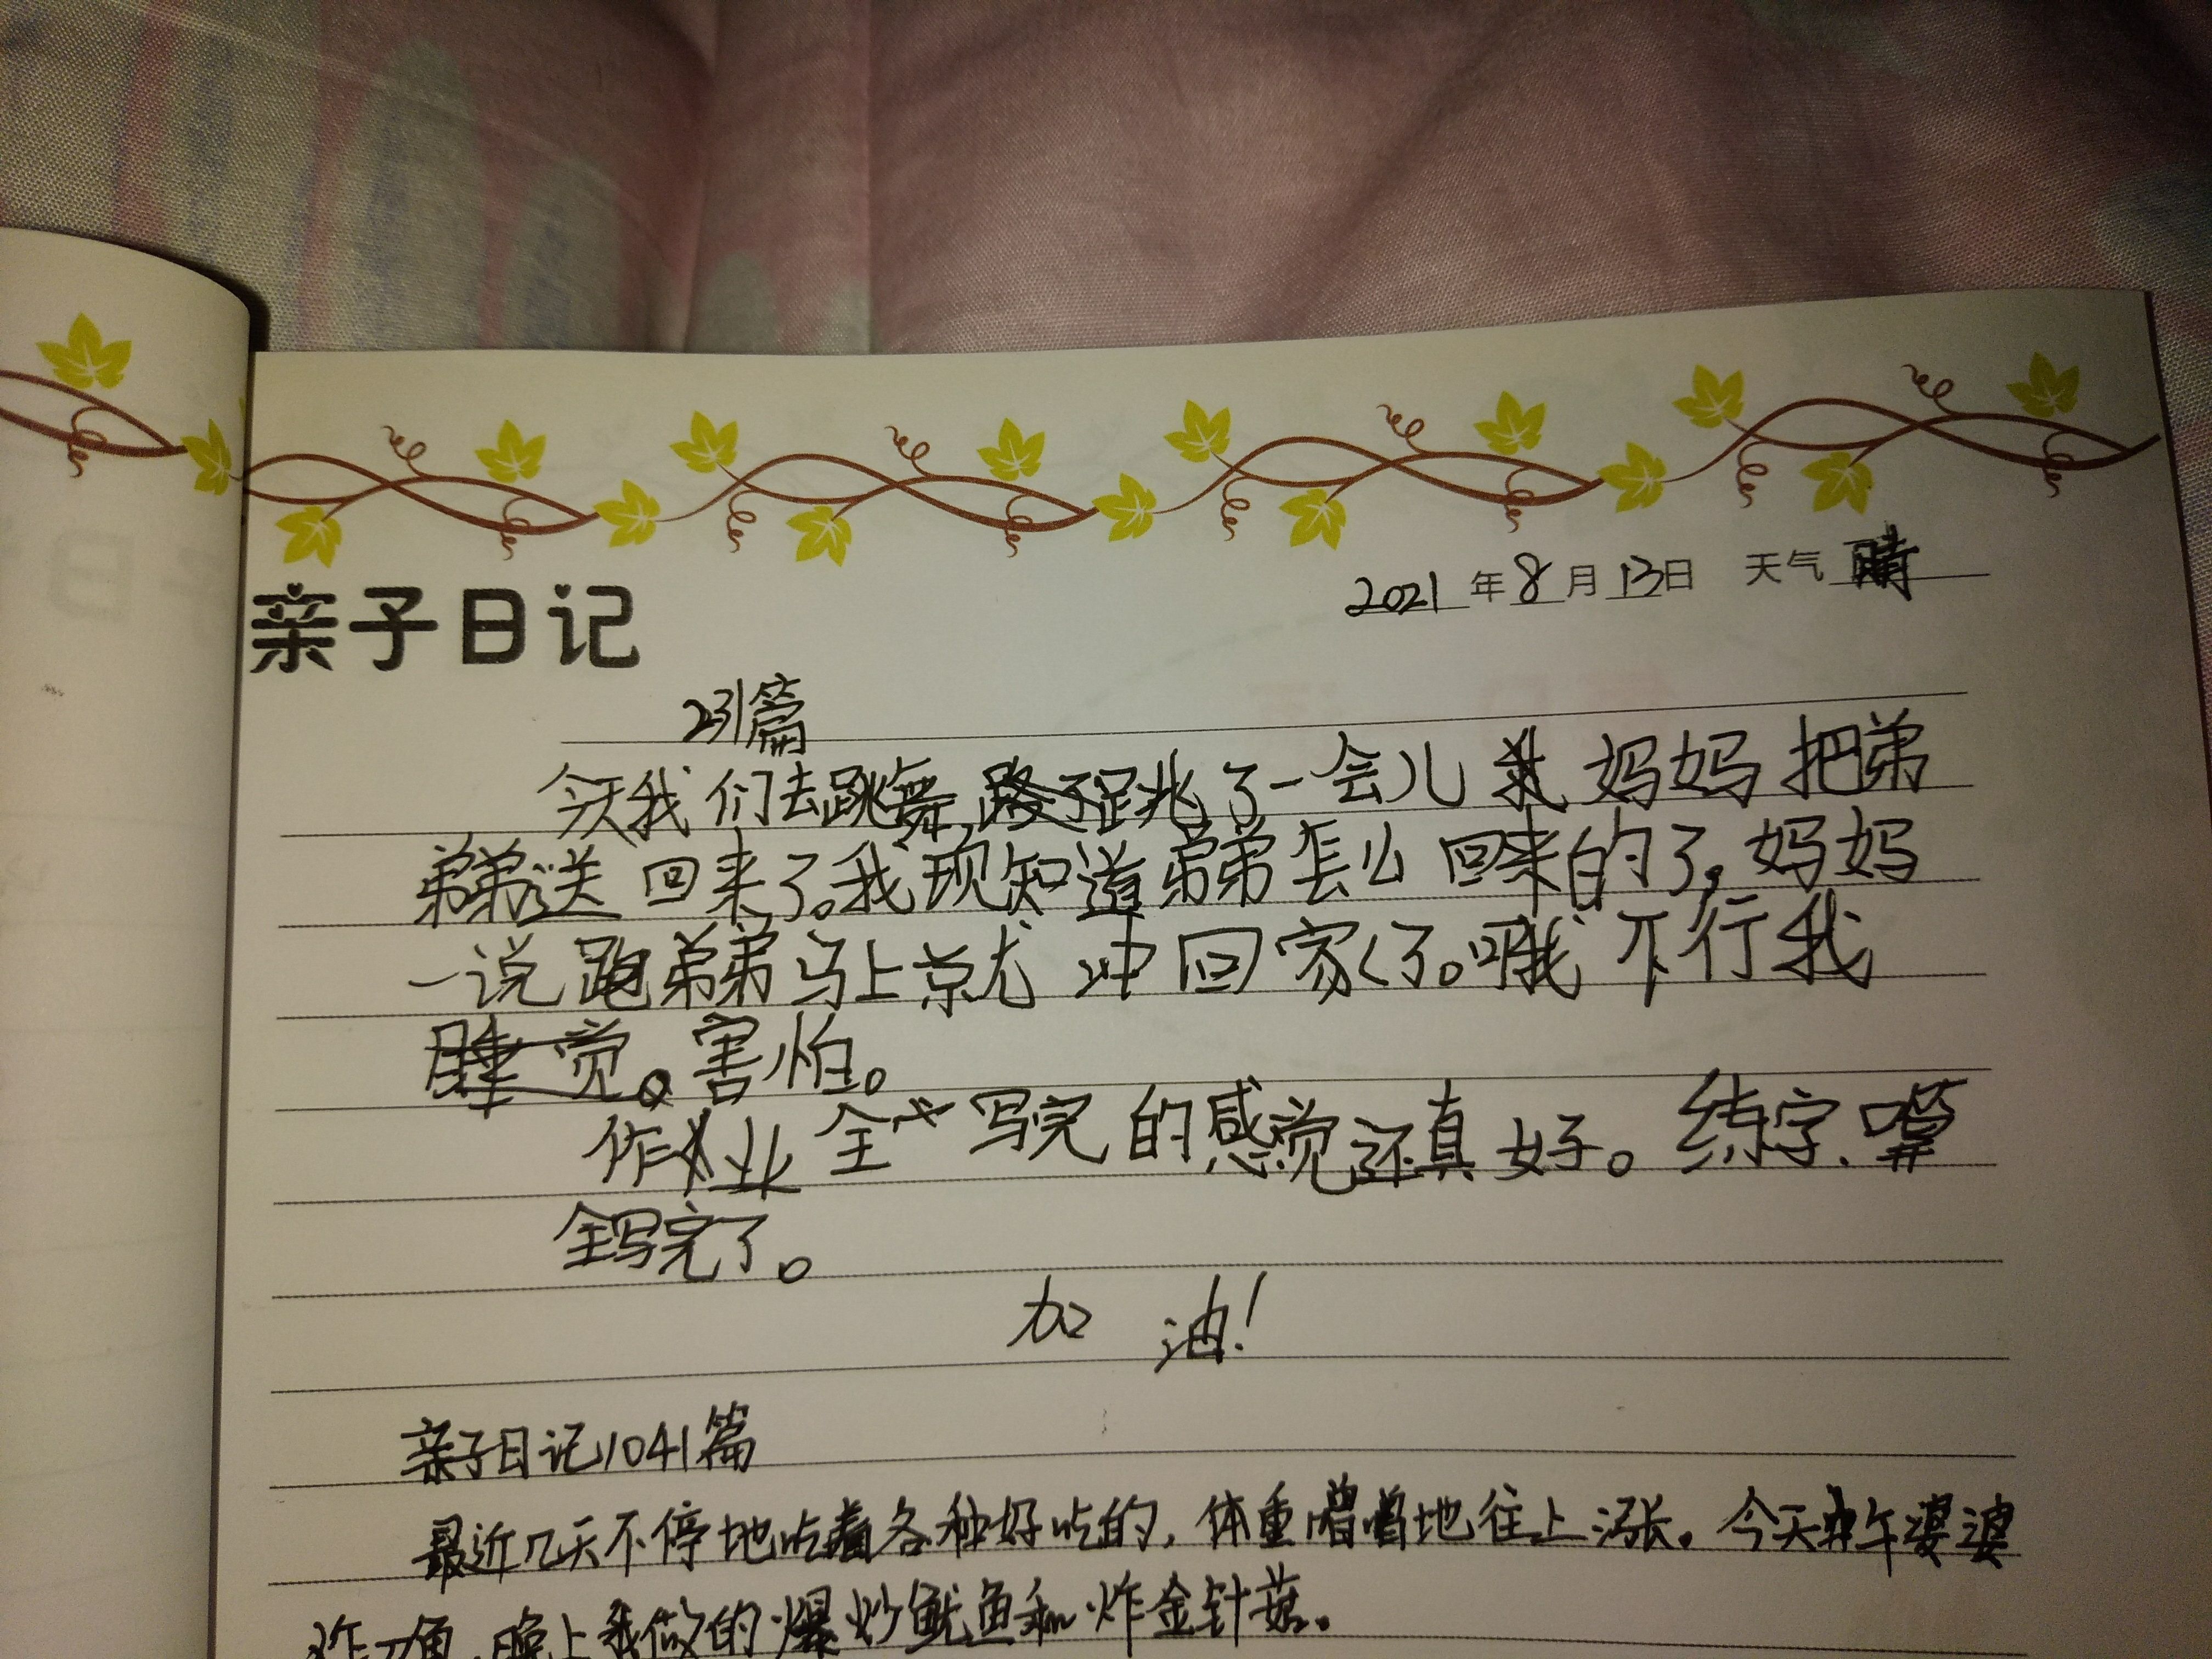 2021年8月13日 天气 晴
亲子日记
231篇
今天我们去跳舞,跳了一会儿我妈妈把弟
弟送回来了。我现知道弟弟怎么回来的了,妈妈
一说跑弟弟马上就冲回家了。哦不行我
害怕。
作业全写完的感觉还真好。练字、
全写完了。
加油!
亲子日记1041篇
最近几天不停地吃着各种好吃的,体重噌噌地往上涨。今天中午婆婆
炸刀鱼,晚上我做的爆炒鱿鱼和炸金针菇。